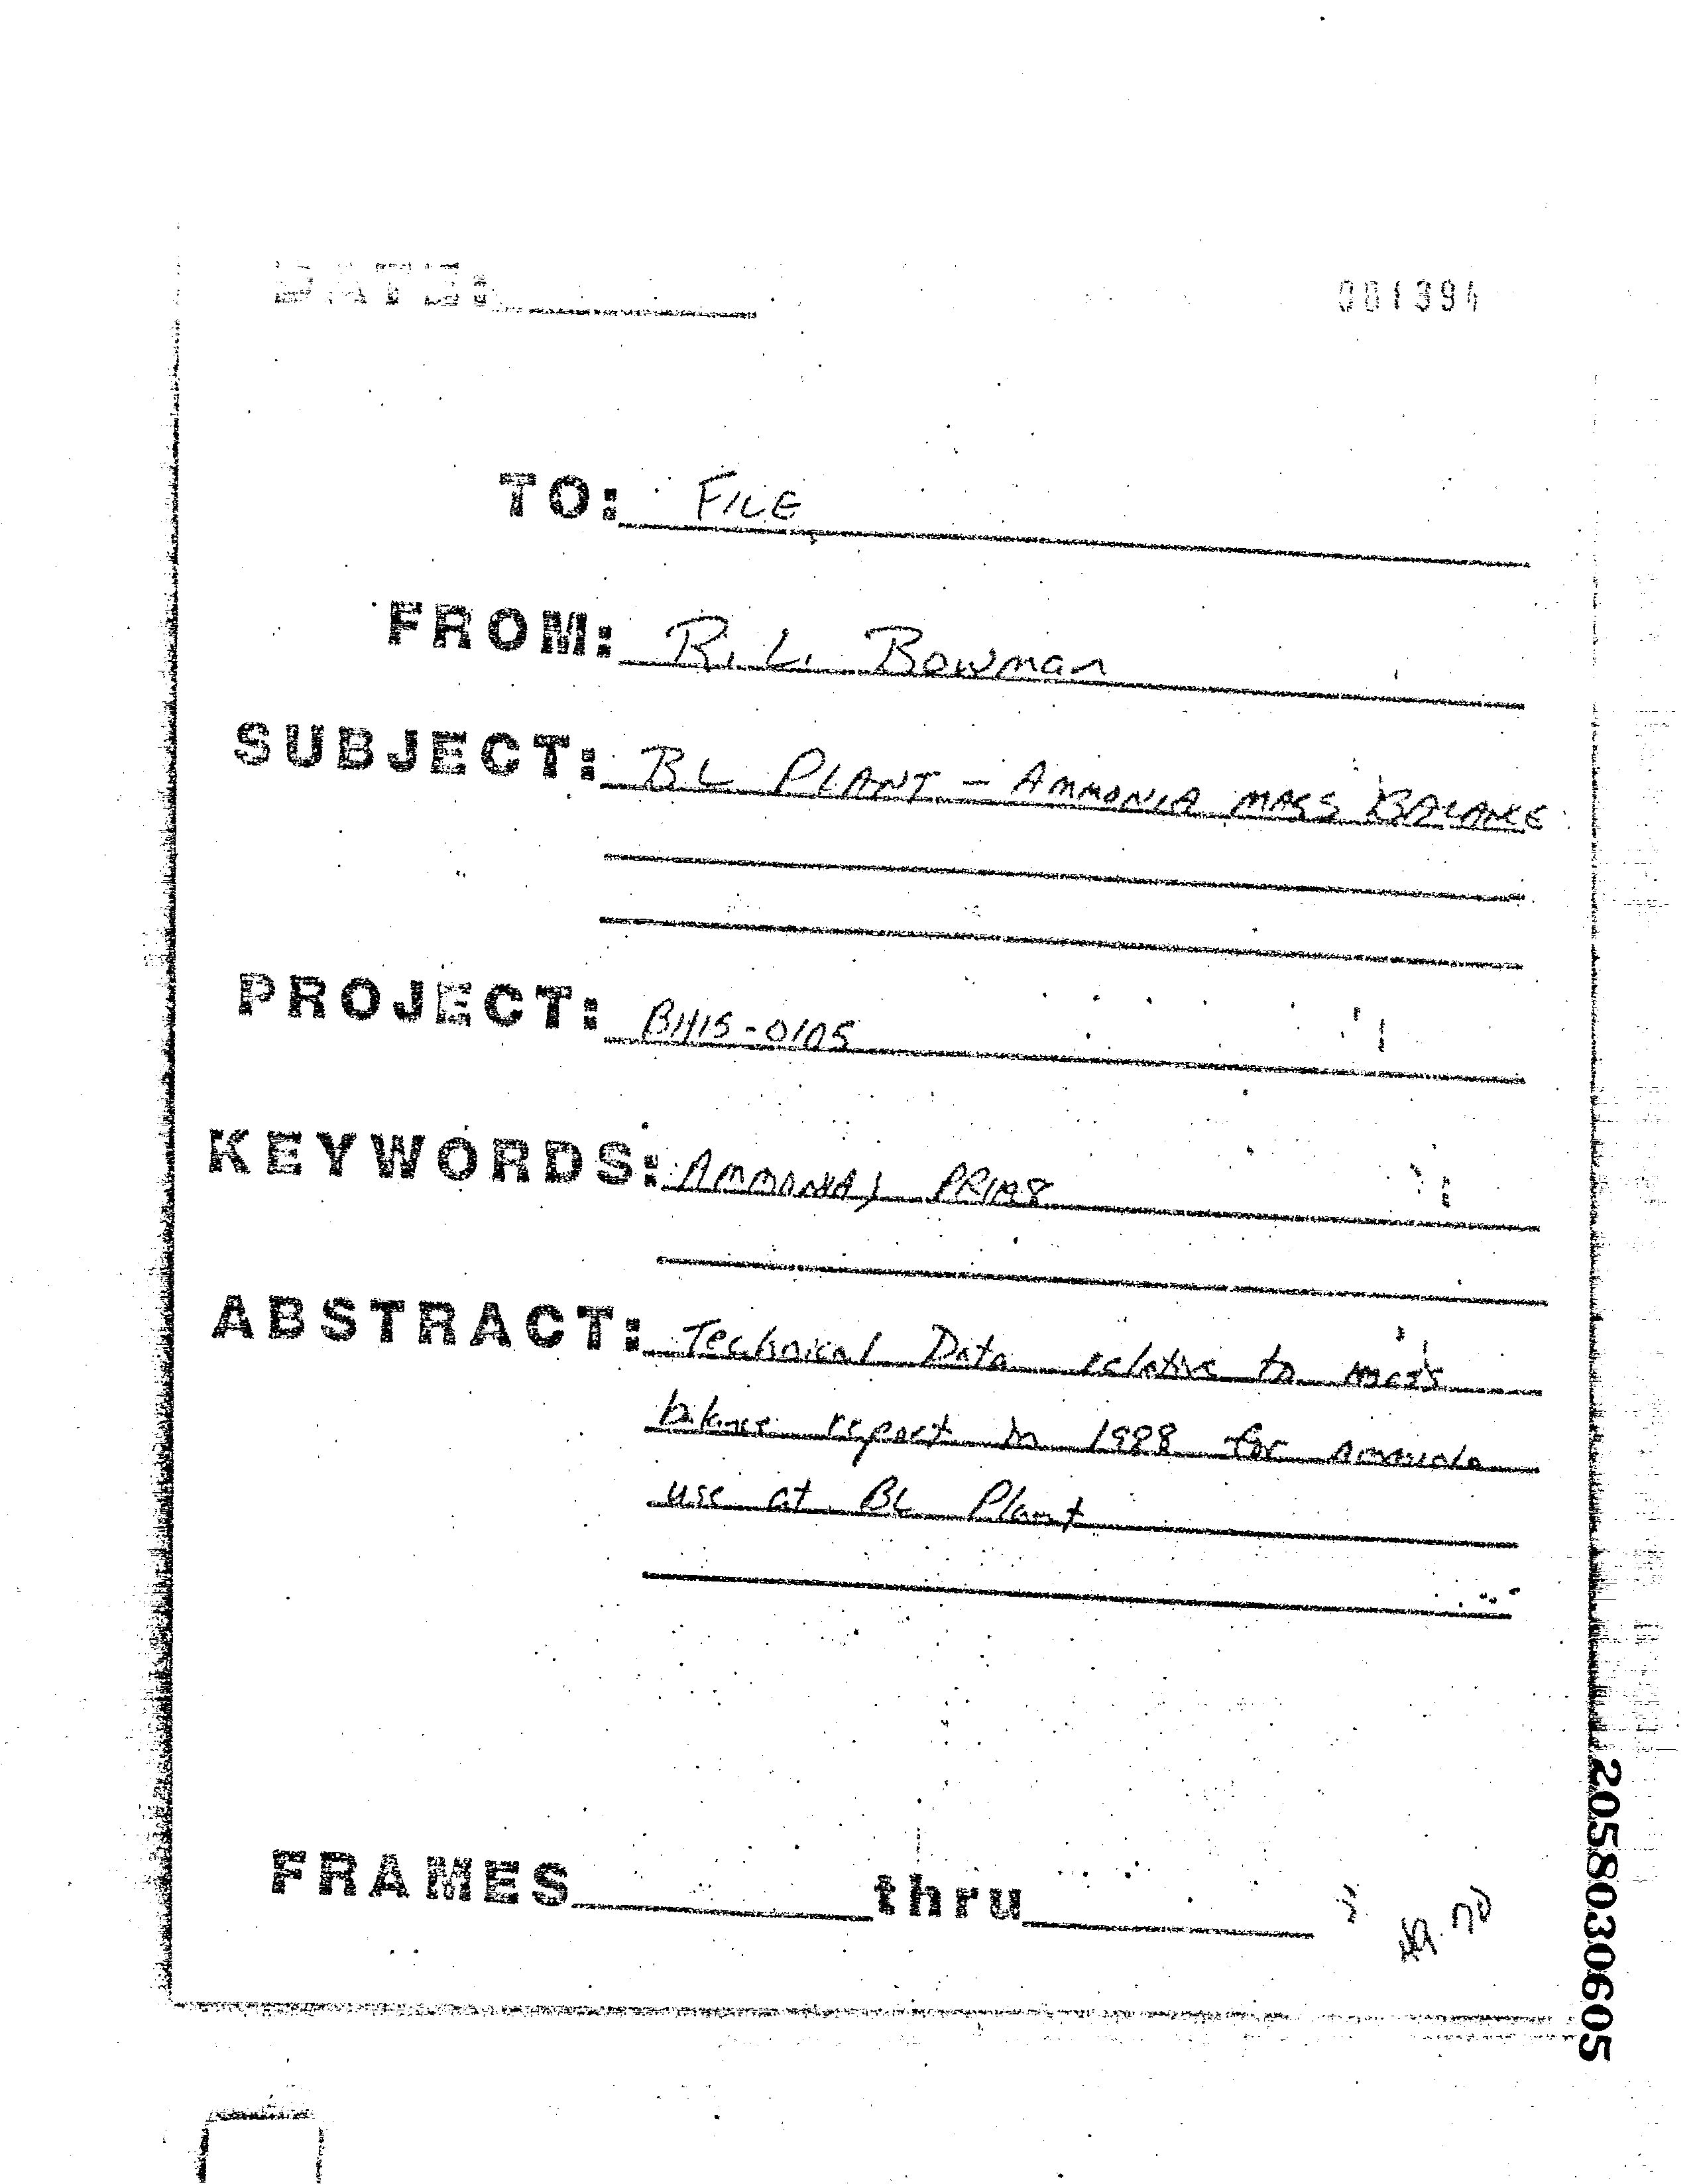 DATE:
001394
TO: FILE
FROM: R. L. Bowman
SUBJECT: BL PLANT - AMMONIA MASS BALANCE
PROJECT:
KEYWORDS: AMMONIA,
ABSTRACT: Technical Data relative to mass
balance report in 1988 for ammonia
use at BL Plant
FRAMES thru
2058030605